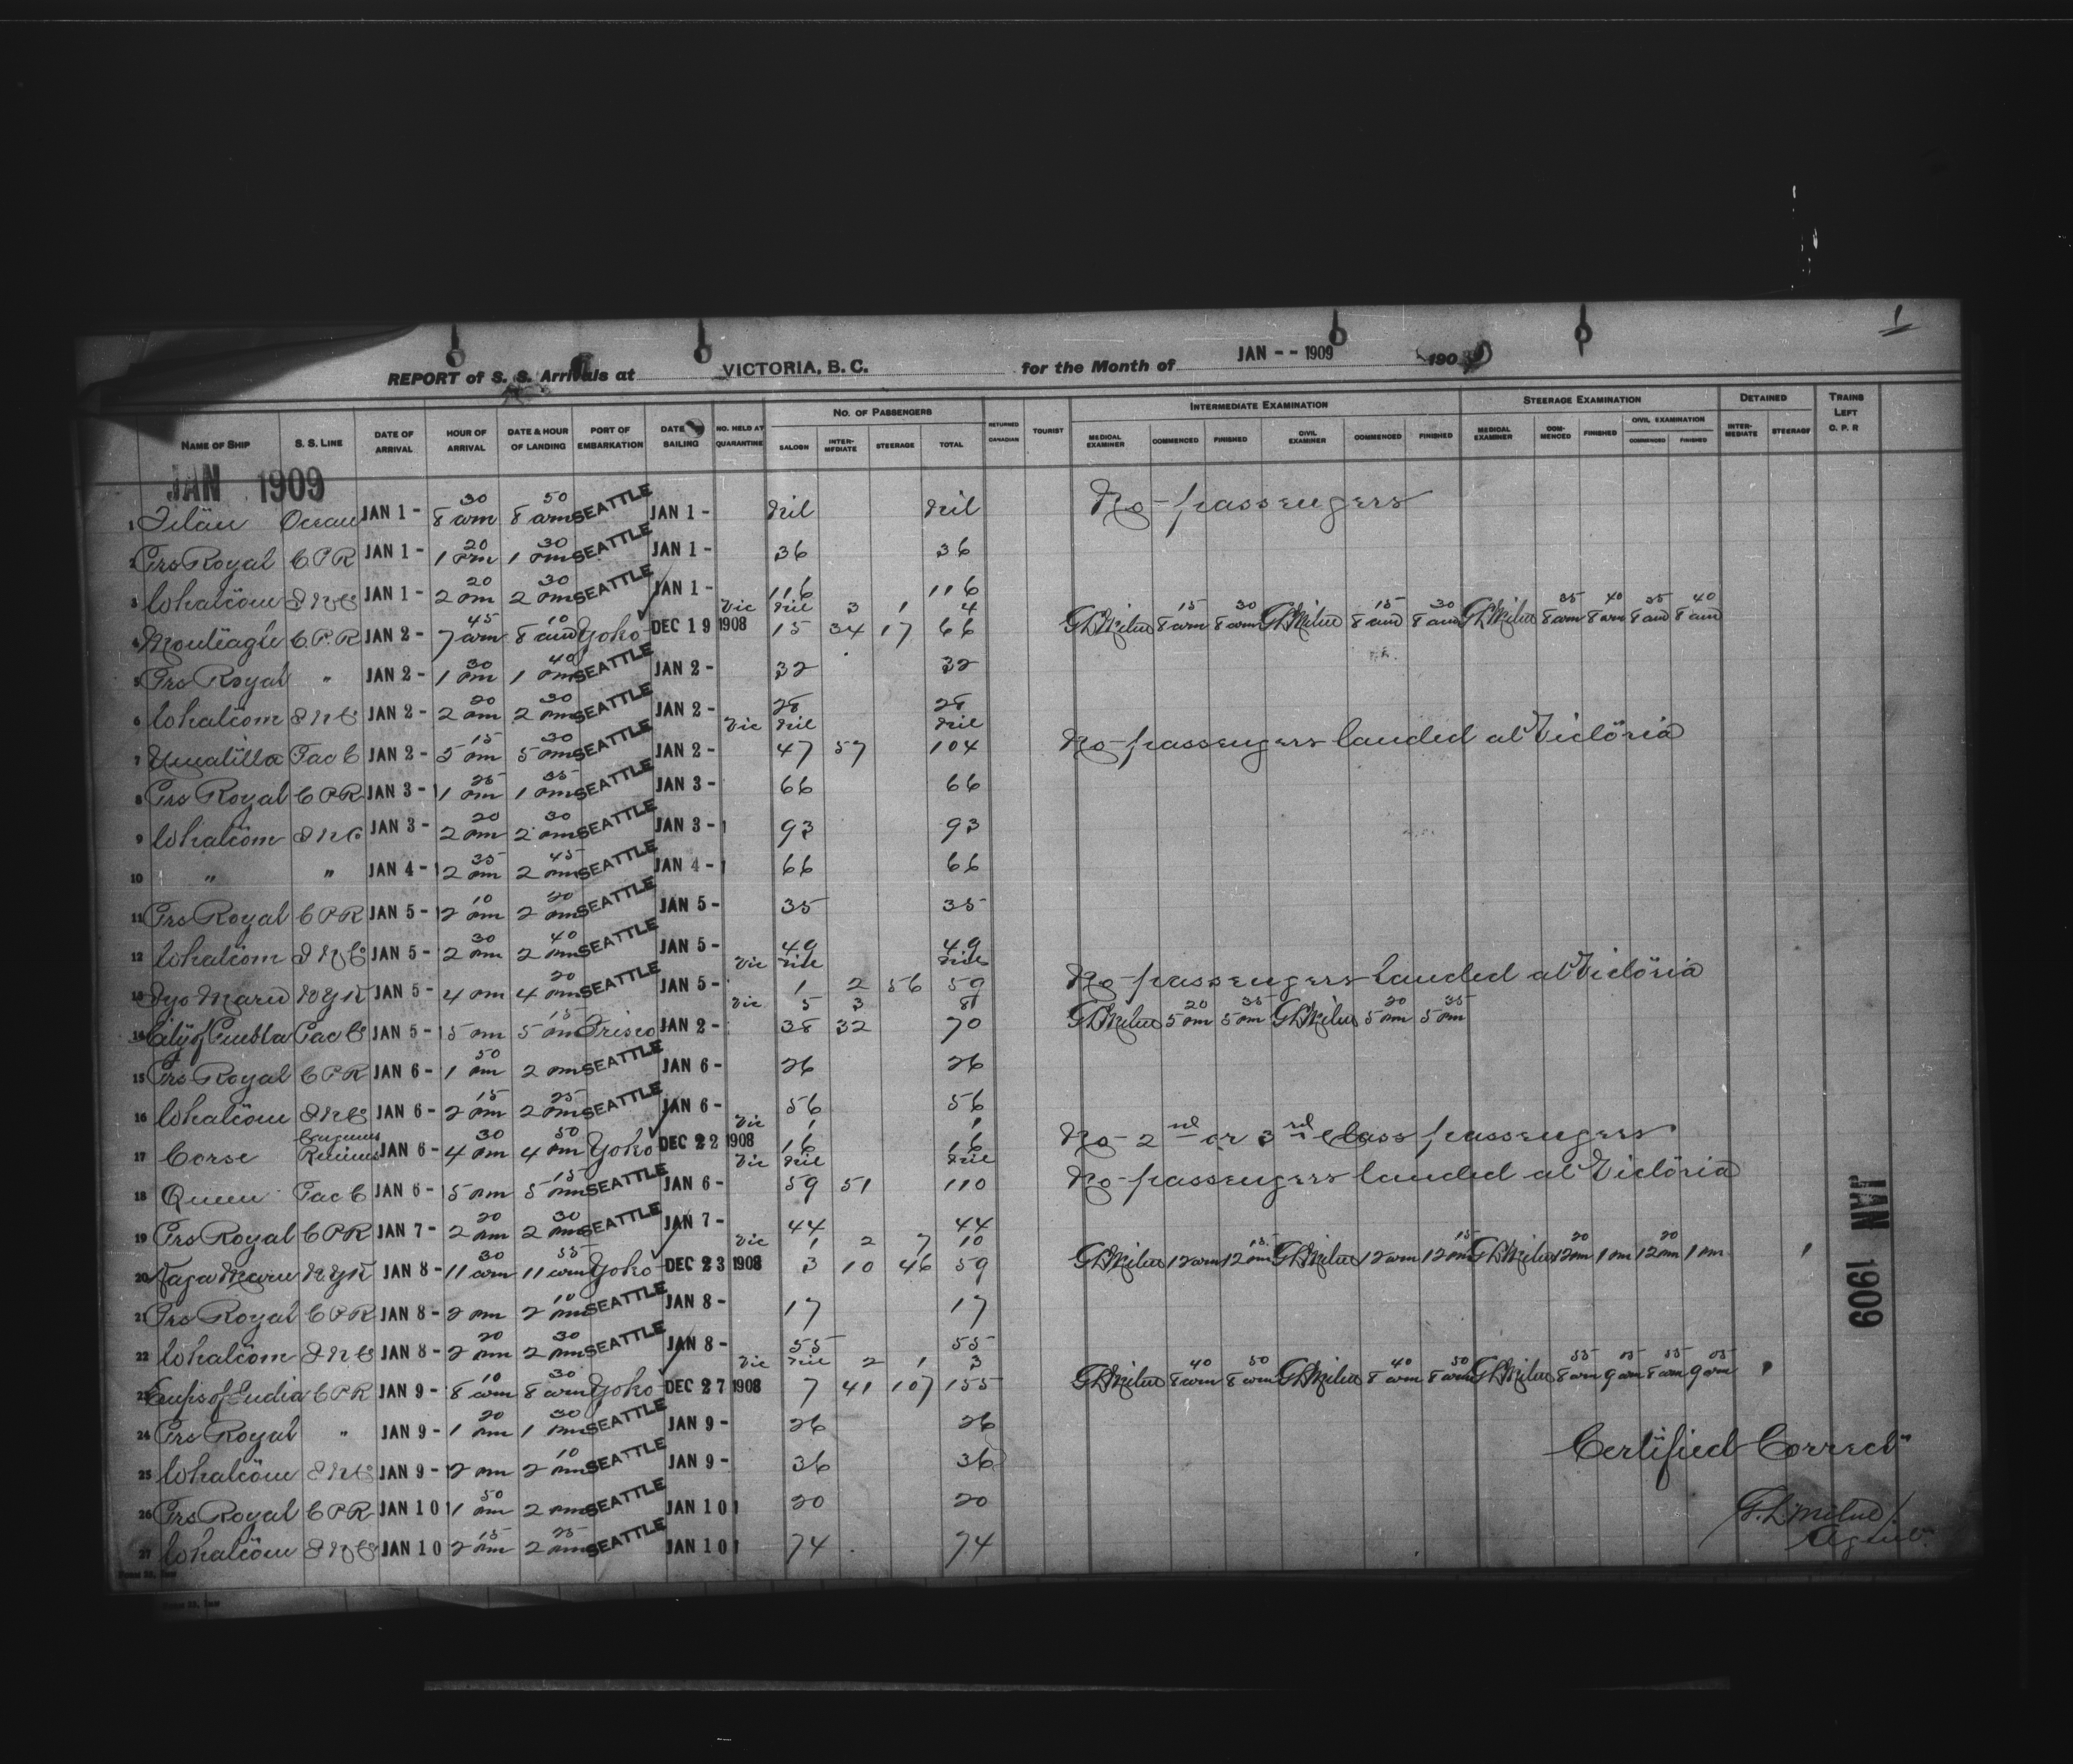 1
REPORT of S. S. Arrivals at VICTORIA, B. C. for the Month of JAN -- 1909 190
NAME OF SHIP S. S. LINE DATE OF ARRIVAL HOUR OF ARRIVAL DATE & HOUR OF LANDING PORT OF EMBARKATION DATE SAILING NO. HELD AT QUARANTINE NO. OF PASSENGERS SALOON INTERMEDIATE STEERAGE TOTAL RETURNED CANADIAN TOURIST INTERMEDIATE EXAMINATION MEDICAL EXAMINER COMMENCED FINISHED CIVIL EXAMINER COMMENCED FINISHED STEERAGE EXAMINATION MEDICAL EXAMINER COMMENCED FINISHED CIVIL EXAMINATION COMMENCED FINISHED DETAINED INTERMEDIATE STEERAGE TRAINS LEFT C. P. R
JAN 1909
1 Titan Ocean JAN 1 - 8 30 am 8 50 am SEATTLE JAN 1 - Nil Nil No passengers
2 Prs Royal C P R JAN 1 - 1 20 pm 1 30 pm SEATTLE JAN 1 - 36 36
3 Whatcom JAN 1 - 2 20 pm 2 30 pm SEATTLE JAN 1 - 116 116
Vic Nil 3 1 4
4 Monteagle C. P. R JAN 2 - 7 45 am 8 10 am Yoko DEC 19 1908 15 34 17 66 GLMilne 8 15 am 8 30 am GLMilne 8 15 am 8 30 am GLMilne 8 35 am 8 40 am 8 35 am 8 40 am
5 Prs Royal " JAN 2 - 1 30 pm 1 40 pm SEATTLE JAN 2 - 32 32
6 Whatcom JAN 2 - 2 20 pm 2 30 pm SEATTLE JAN 2 - 28 28
Vic Nil Nil
7 Umatilla Pac C JAN 2 - 5 15 pm 5 30 pm SEATTLE JAN 2 - 47 57 104 No passengers landed at Victoria
8 Prs Royal C P R JAN 3 - 1 25 pm 1 35 pm SEATTLE JAN 3 - 66 66
9 Whatcom JAN 3 - 2 20 pm 2 30 pm SEATTLE JAN 3 - 93 93
10 " " JAN 4 - 2 35 pm 2 45 pm SEATTLE JAN 4 - 66 66
11 Prs Royal C P R JAN 5 - 2 10 pm 2 20 pm SEATTLE JAN 5 - 35 35
12 Whatcom JAN 5 - 2 30 pm 2 40 pm SEATTLE JAN 5 - 49 49
Vic Nil Nil
13 Iyo Maru N Y K JAN 5 - 4 pm 4 20 pm SEATTLE JAN 5 - 1 2 56 59 No passengers landed at Victoria
Vic 5 3 8
14 City of Puebla Pac C JAN 5 - 5 pm 5 15 pm Frisco JAN 2 - 38 32 70 GLMilne 5 20 pm 5 35 pm GLMilne 5 20 pm 5 35 pm
15 Prs Royal C P R JAN 6 - 1 50 pm 2 pm SEATTLE JAN 6 - 26 26
16 Whatcom JAN 6 - 2 15 pm 2 25 pm SEATTLE JAN 6 - 56 56
Vic 1 1
17 Corse JAN 6 - 4 30 pm 4 50 pm Yoko DEC 22 1908 16 16 No 2nd or 3rd Class passengers
Vic Nil Nil
18 Queen Pac C JAN 6 - 5 pm 5 15 pm SEATTLE JAN 6 - 59 51 110 No passengers landed at Victoria
19 Prs Royal C P R JAN 7 - 2 20 pm 2 30 pm SEATTLE JAN 7 - 44 44
Vic 1 2 7 10
20 Kaga Maru N Y K JAN 8 - 11 30 am 11 55 am Yoko DEC 23 1908 3 10 46 59 GLMilne 12 am 12 15 pm GLMilne 12 am 12 15 pm GLMilne 12 20 pm 1 pm 12 20 pm 1 pm 1
21 Prs Royal C P R JAN 8 - 2 pm 2 10 pm SEATTLE JAN 8 - 17 17
22 Whatcom JAN 8 - 2 20 pm 2 30 pm SEATTLE JAN 8 - 55 55
Vic Nil 2 1 3
23 Emps of India C P R JAN 9 - 8 10 am 8 30 am Yoko DEC 27 1908 7 41 107 155 GLMilne 8 40 am 8 50 am GLMilne 8 40 am 8 50 am GLMilne 8 55 am 9 05 am 8 55 am 9 05 am
24 Prs Royal " JAN 9 - 1 20 pm 1 30 pm SEATTLE JAN 9 - 26 26
25 Whatcom JAN 9 - 2 pm 2 10 pm SEATTLE JAN 9 - 36 36
26 Prs Royal C P R JAN 10 1 50 pm 2 pm SEATTLE JAN 10 20 20
27 Whatcom JAN 10 2 15 pm 2 25 pm SEATTLE JAN 10 74 74
Certified Correct
G. L Milne
Agent
JAN 1909